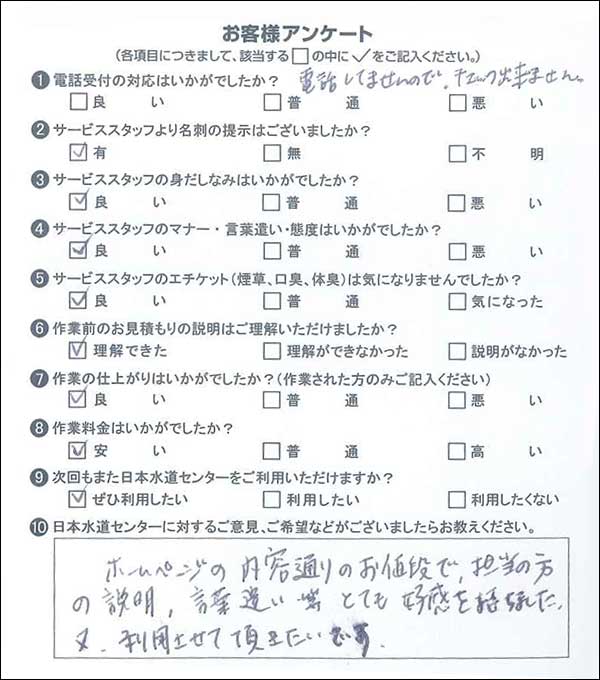 お客様アンケート
(各項目につきまして、該当する□の中に✓をご記入ください。)
❶電話受付の対応はいかがでしたか? 電話してませんので、チェック出来ません。
□良い □普通 □悪い
❷サービススタッフより名刺の提示はございましたか?
☑有 □無 □不明
❸サービススタッフの身だしなみはいかがでしたか?
☑良い □普通 □悪い
❹サービススタッフのマナー・言葉遣い・態度はいかがでしたか?
☑良い □普通 □悪い
❺サービススタッフのエチケット(煙草、口臭、体臭)は気になりませんでしたか?
☑良い □普通 □気になった
❻作業前のお見積もりの説明はご理解いただけましたか?
☑理解できた □理解ができなかった □説明がなかった
❼作業の仕上がりはいかがでしたか?(作業された方のみご記入ください)
☑良い □普通 □悪い
❽作業料金はいかがでしたか?
☑安い □普通 □高い
❾次回もまた日本水道センターをご利用いただけますか?
☑ぜひ利用したい □利用したい □利用したくない
❿日本水道センターに対するご意見、ご希望などがございましたらお教えください。
ホームページの内容通りのお値段で、担当の方
の説明、言葉遣い等とても好感を持てました。
又、利用させて頂きたいです。